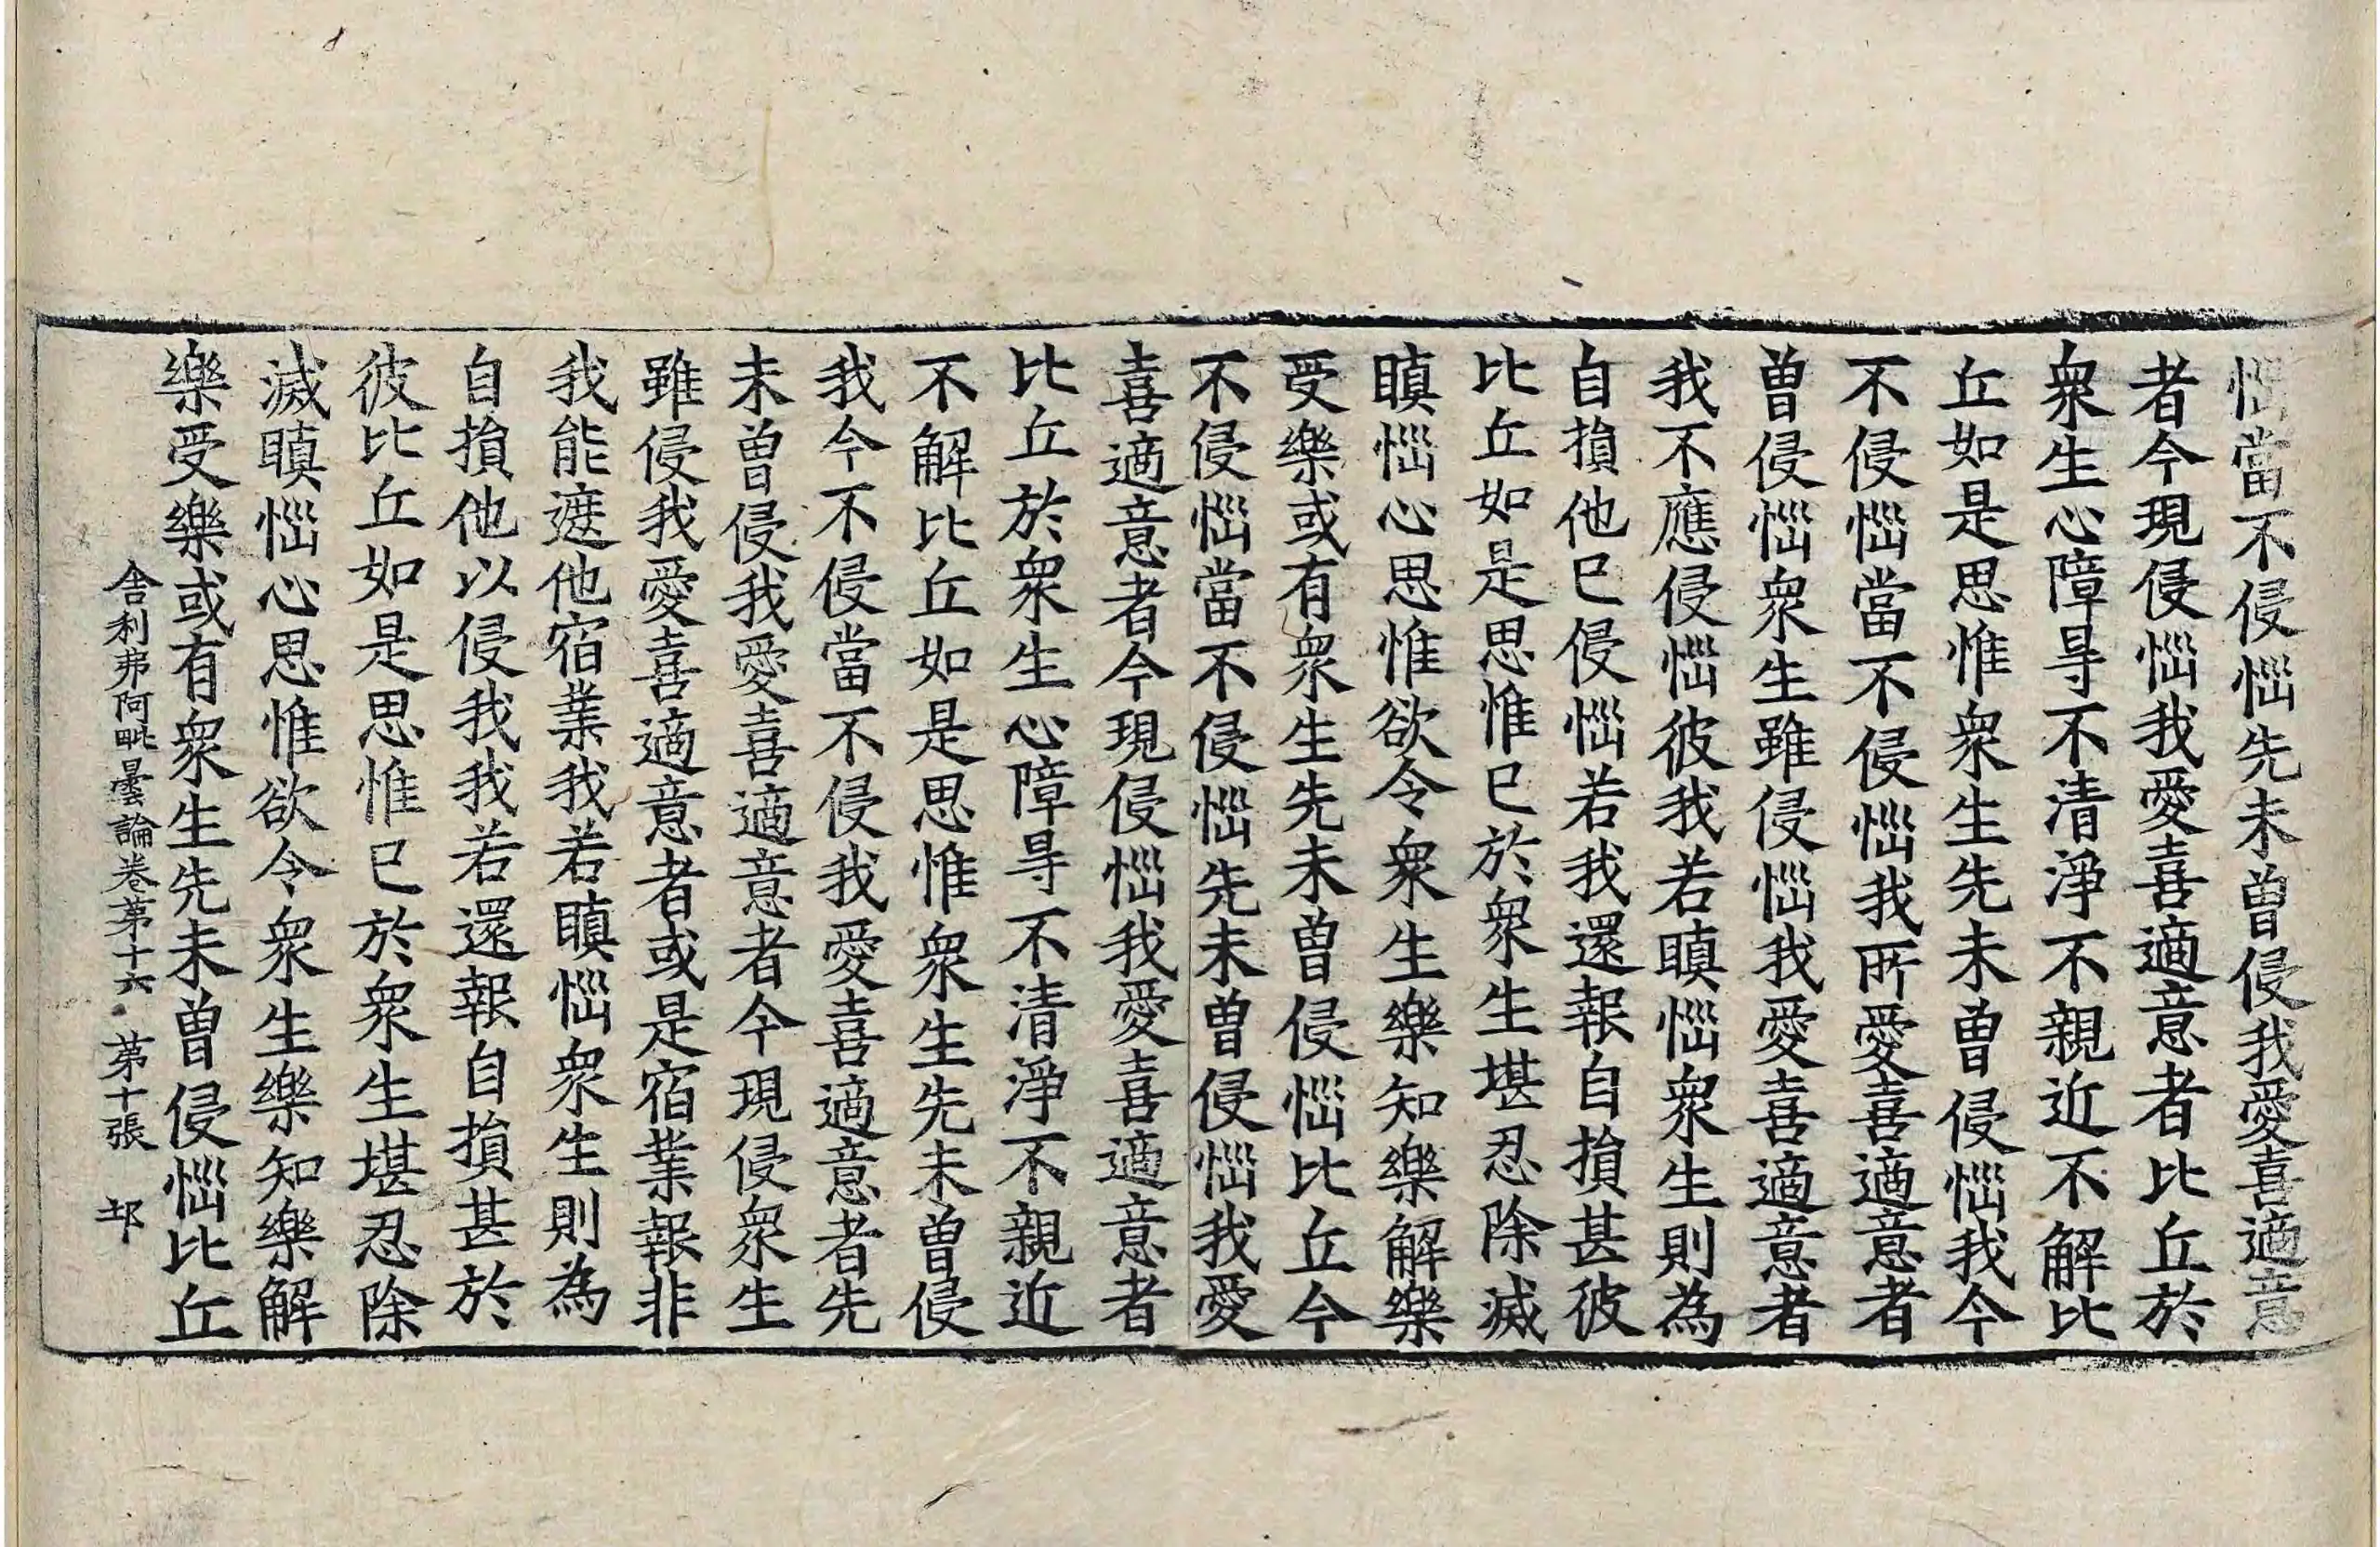 惱當不侵惱先未曾侵我愛喜適意
者今現侵惱我愛喜適意者比丘於
衆生心障㝵不清淨不親近不解比
丘如是思惟衆生先未曾侵惱我今
不侵惱當不侵惱我所愛喜適意者
曾侵惱衆生雖侵惱我愛喜適意者
我不應侵惱彼我若瞋惱衆生則為
自損他已侵惱若我還報自損甚彼
比丘如是思惟已於衆生堪忍除滅
瞋惱心思惟欲令衆生樂知樂解樂
受樂或有衆生先未曾侵惱比丘今
不侵惱當不侵惱先未曾侵惱我愛
喜適意者今現侵惱我愛喜適意者
比丘於衆生心障㝵不清淨不親近
不解比丘如是思惟衆生先未曾侵
我今不侵當不侵我愛喜適意者先
未曾侵我愛喜適意者今現侵衆生
雖侵我愛喜適意者或是宿業報非
我能遮他宿業我若瞋惱衆生則為
自損他以侵我我若還報自損甚於
彼比丘如是思惟已於衆生堪忍除
滅瞋惱心思惟欲令衆生樂知樂解
樂受樂或有衆生先未曾侵惱比丘
舍利弗阿毗曇論卷第十六 第十張